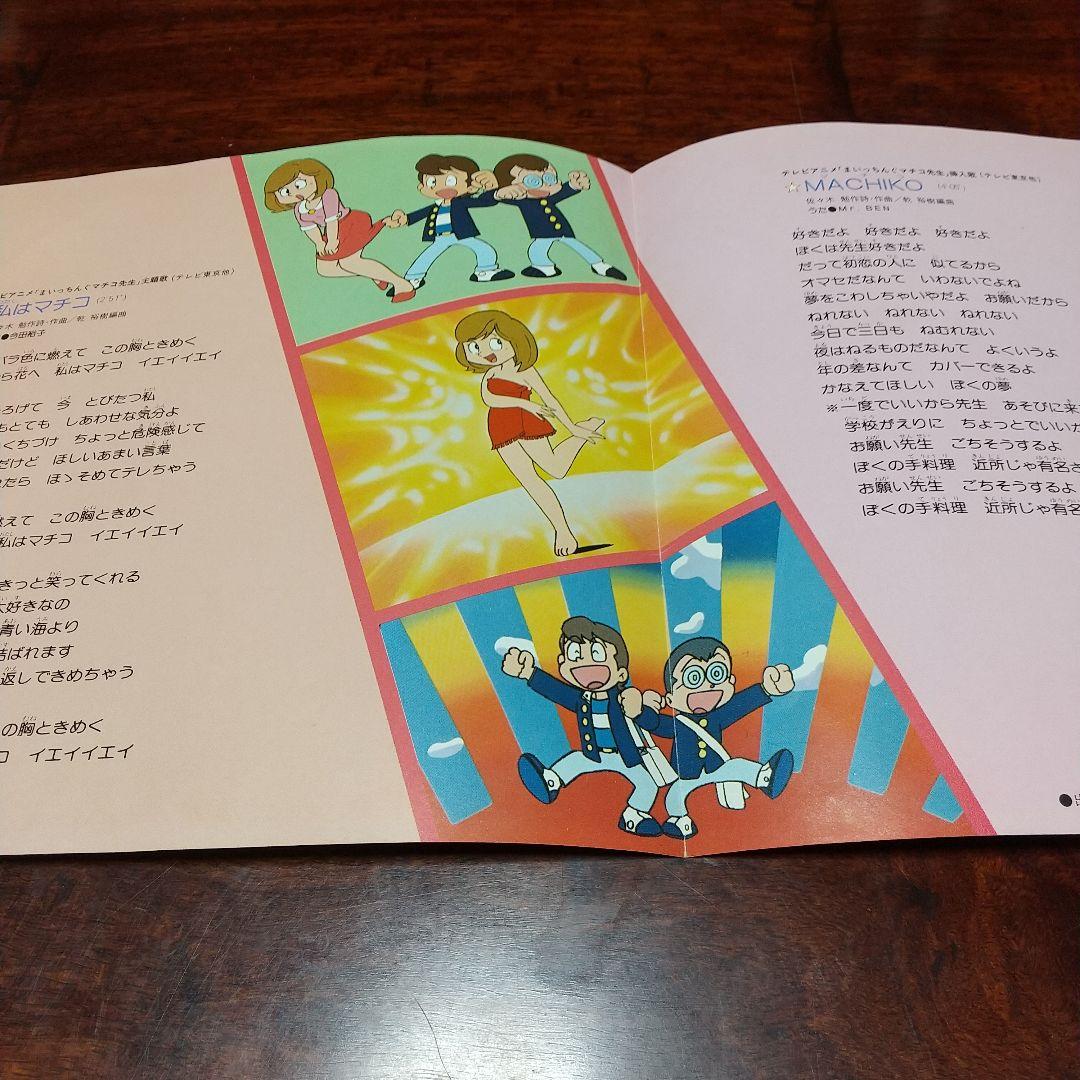 ビアニメ「まいっちんぐマチコ先生」主題歌(テレビ東京他)
私はマチコ(2'51")
々木 勉作詩・作曲/乾 裕樹編曲
●今田裕子
ラ色に燃えて この胸ときめく
ら花へ 私はマチコ イエイイエイ
ろげて 今 とびたつ私
もとても しあわせな気分よ
くちづけ ちょっと危険感じて
だけど ほしいあまい言葉
たら ほゝそめてテレちゃう
燃えて この胸ときめく
私はマチコ イエイイエイ
きっと笑ってくれる
大好きなの
青い海より
結ばれます
返しできめちゃう
の胸ときめく
コ イエイイエイ
テレビアニメ「まいっちんぐマチコ先生」挿入歌(テレビ東京他)
☆MACHIKO
佐々木 勉作詩・作曲/乾 裕樹編曲
うた●Mr. BEN
好きだよ 好きだよ 好きだよ
ぼくは先生好きだよ
だって初恋の人に 似てるから
オマセだなんて いわないでよね
夢をこわしちゃいやだよ お願いだから
ねれない ねれない ねれない
今日で三日も ねむれない
夜はねるものだなんて よくいうよ
年の差なんて カバーできるよ
かなえてほしい ぼくの夢
※一度でいいから先生 あそびに来
学校がえりに ちょっとでいいか
お願い先生 ごちそうするよ
ぼくの手料理 近所じゃ有名さ
お願い先生 ごちそうするよ
ぼくの手料理 近所じゃ有名